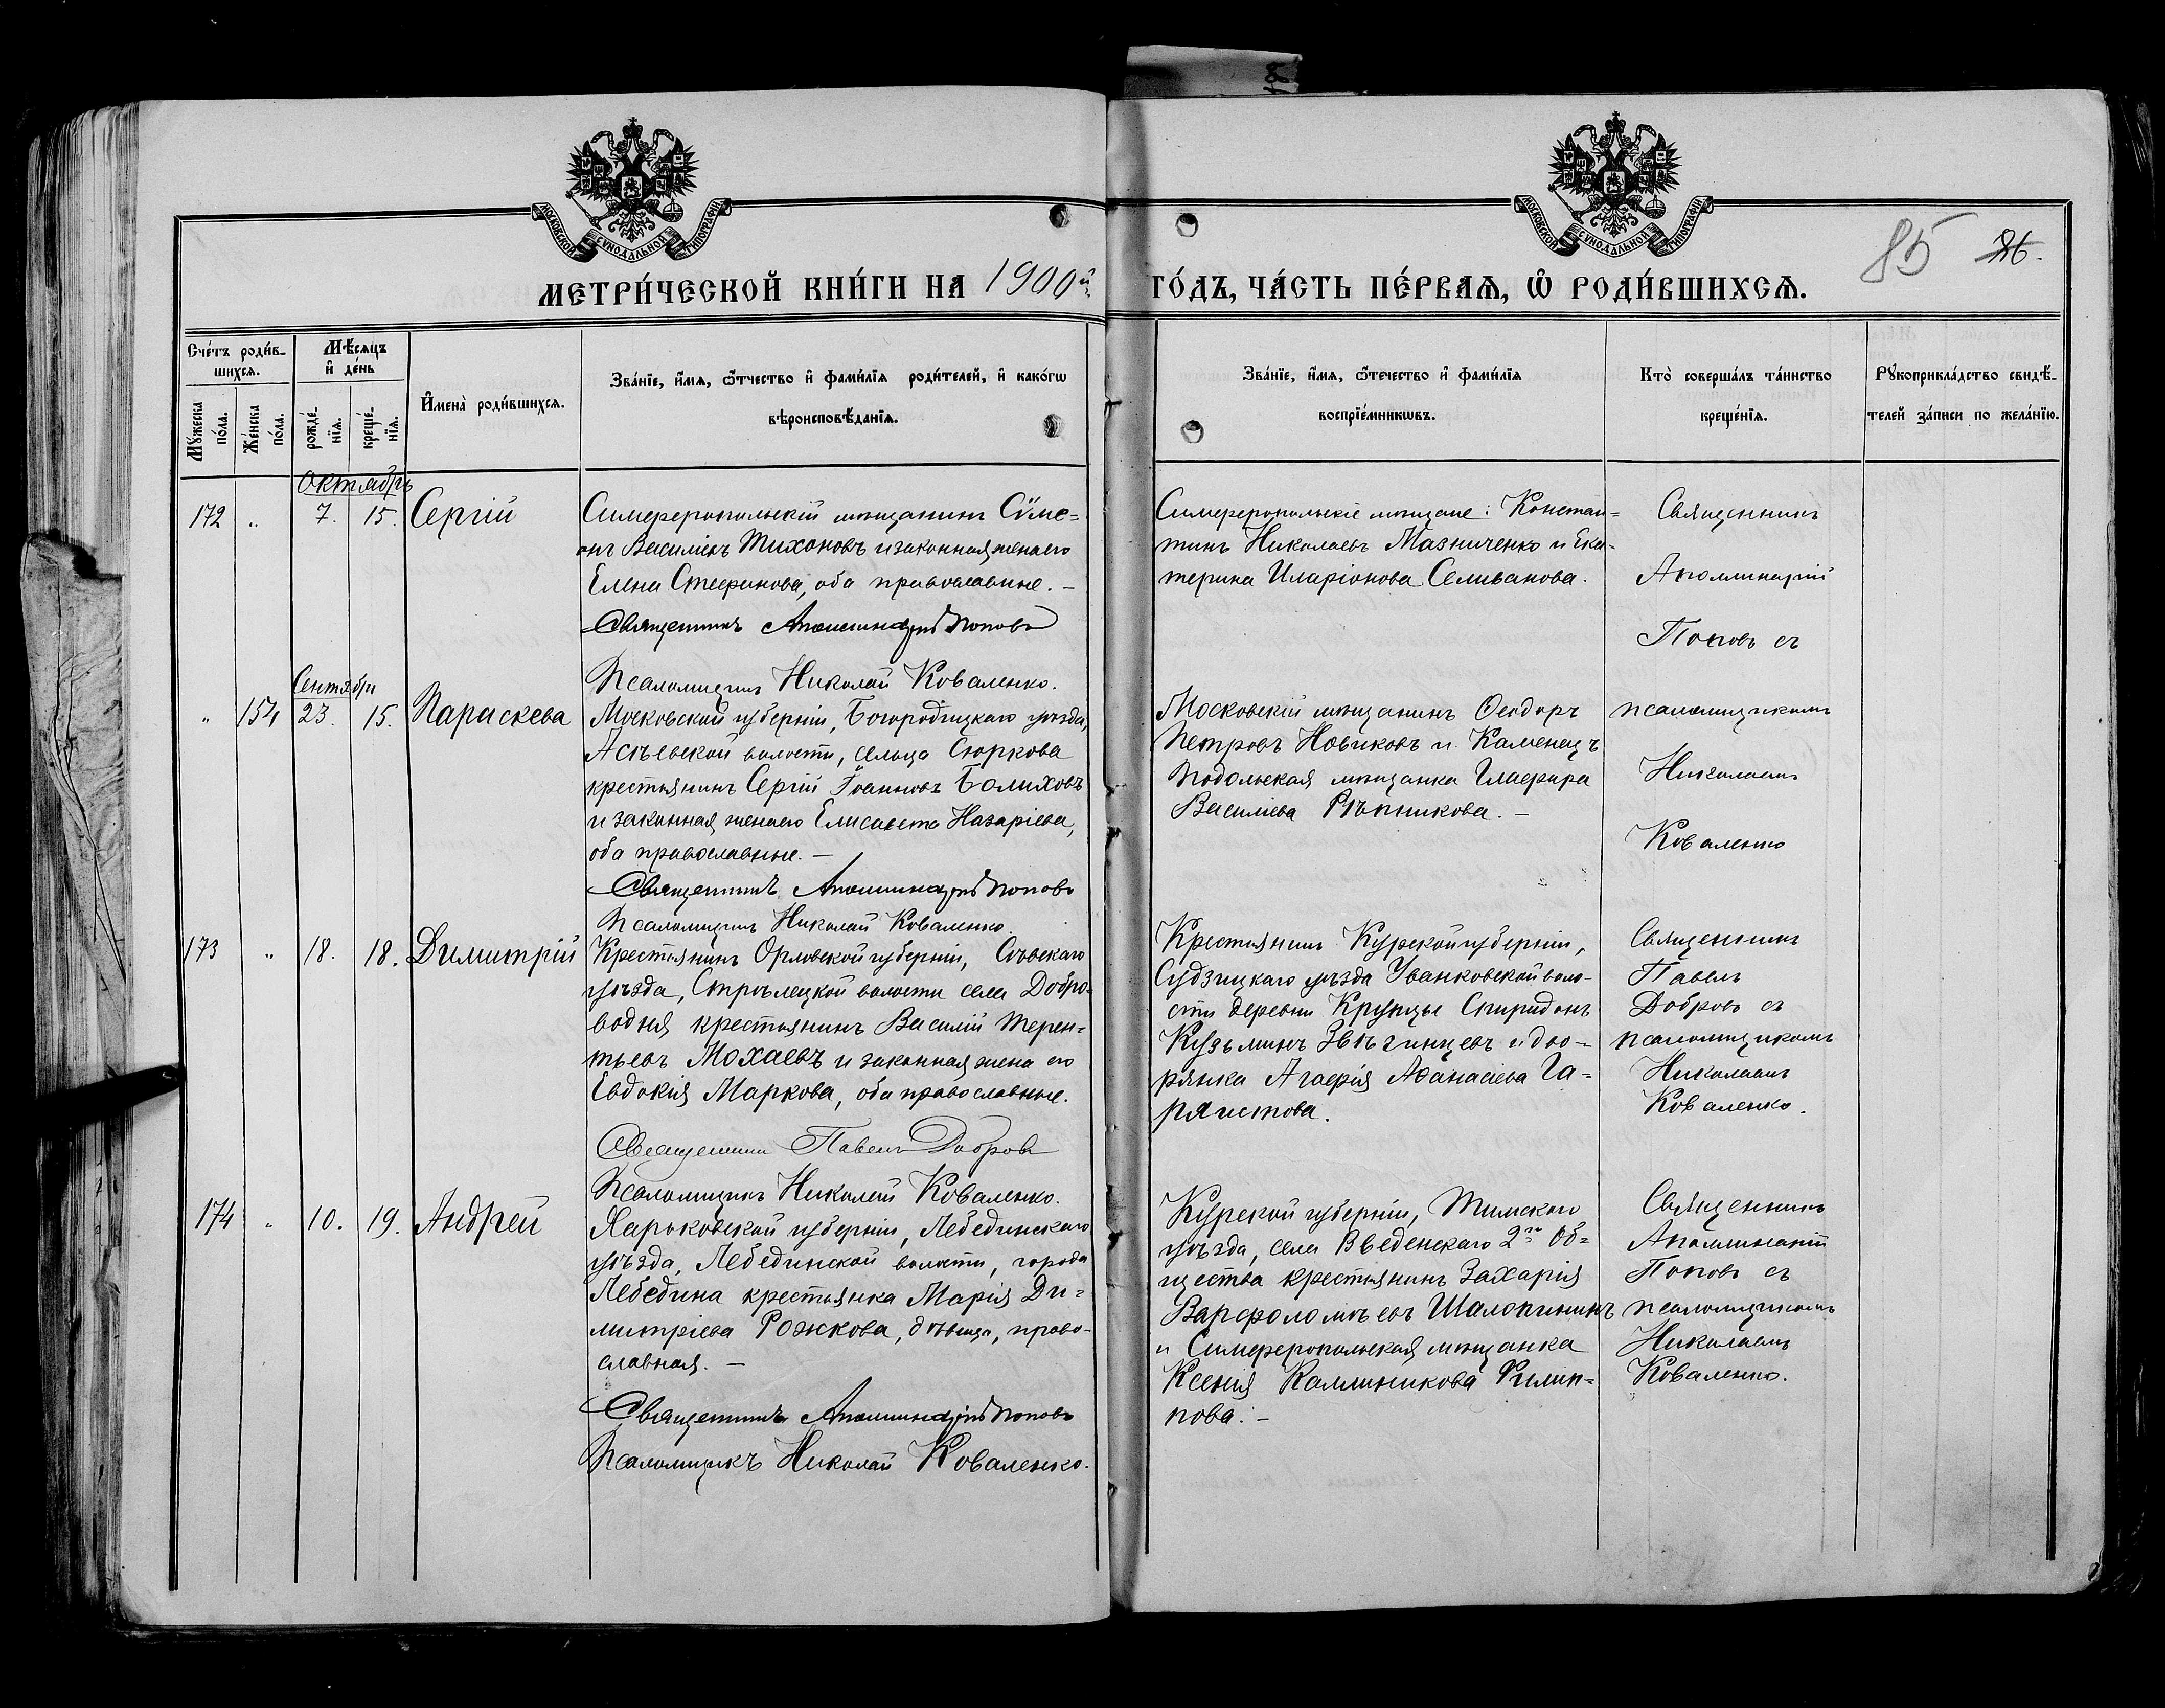 МОСКОВСКОЙ СѴНОДАЛЬНОЙ ТИПОГРАФІИ
МОСКОВСКОЙ СѴНОДАЛЬНОЙ ТИПОГРАФІИ
85 86.
МЕТРИ́ЧЕСКОЙ КНИ́ГИ НА 1900й. ГО́ДЪ, ЧА́СТЬ ПЕ́РВАѦ, Ѽ РОДИ́ВШИХСѦ.
Сче́тъ роди́в-
шихсѧ.
Мꙋ́жеска по́ла.
Же́нска по́ла.
Мѣ́сѧцъ
и҆ де́нь
рожде́-
нїѧ.
креще́-
нїѧ.
И҆мена̀ роди́вшихсѧ.
Зва́нїе, и҆́мѧ, ѻ҆́тчество и҆ фами́лїѧ роди́телей, и҆ како́гѡ
вѣроисповѣ́данїѧ.
Зва́нїе, и҆́мѧ, ѻ҆те́чество и҆ фами́лїѧ
воспрїе́мникѡвъ.
Кто̀ соверша́лъ та́инство
креще́нїѧ.
Рꙋкоприкла́дство свидѣ́-
телей за́писи по жела́нїю.
Октябрь
172 „ 7. 15. Сергій
Симферопольскій мѣщанинъ Сѵме-
онъ Василіевъ Тихоновъ и законная жена его
Елена Стефанова, оба православные. —
Священникъ Аполлинарій Поповъ
Псаломщикъ Николай Коваленко.
Симферопольскіе мѣщане: Констан-
тинъ Николаевъ Мазниченко и Ека-
терина Иларіонова Селиванова.
Священникъ
Аполлинарій
Поповъ съ
Сентября
„ 154 23. 15. Параскева
Московской губерніи, Богородицкаго уѣзда,
волости, сельца Сюркова
крестьянинъ Сергій Іоанновъ Болиховъ
и законная жена его Елисавета Назаріева,
оба православные. —
Священникъ Аполлинарій Поповъ
Псаломщикъ Николай Коваленко.
Московскій мѣщанинъ Ѳеодоръ
Петровъ Новиковъ и Каменецъ
Подольская мѣщанка Глафира
Василіева Рѣпникова. —
псаломщикомъ
Николаемъ
Коваленко
173 „ 18. 18. Димитрій
Крестьянинъ Орловской губерніи, Сѣвскаго
уѣзда, Стрѣлецкой волости села Добро-
водья крестьянинъ Василій Терен-
тьевъ Мохаевъ и законная жена его
Евдокія Маркова, оба православные.
Священникъ Павелъ Добровъ
Псаломщикъ Николай Коваленко.
Крестьянинъ Курской губерніи,
уѣзда Уванковской воло-
сти деревни Крупцы Спиридонъ
Кузьминъ Звѣгинцевъ и дво-
рянка Агафія Аѳанасіева Га-
рягистова.
Священникъ
Павелъ
Добровъ съ
псаломщикомъ
Николаемъ
Коваленко.
174 „ 10. 19. Андрей
Харьковской губерніи, Лебединскаго
уѣзда, Лебединской волости, города
Лебедина крестьянка Марія Ди-
митріева Рожкова, дѣвица, право-
славная. —
Священникъ Аполлинарій Поповъ
Псаломщикъ Николай Коваленко.
Курской губерніи, Тимскаго
уѣзда, села Введенскаго 2го Об-
щества крестьянинъ Захарія
Варфоломѣевъ Шалопининъ
и Симферопольская мѣщанка
Ксенія Каллиникова Филип-
пова. —
Священникъ
Аполлинарій
Поповъ съ
псаломщикомъ
Николаемъ
Коваленко.